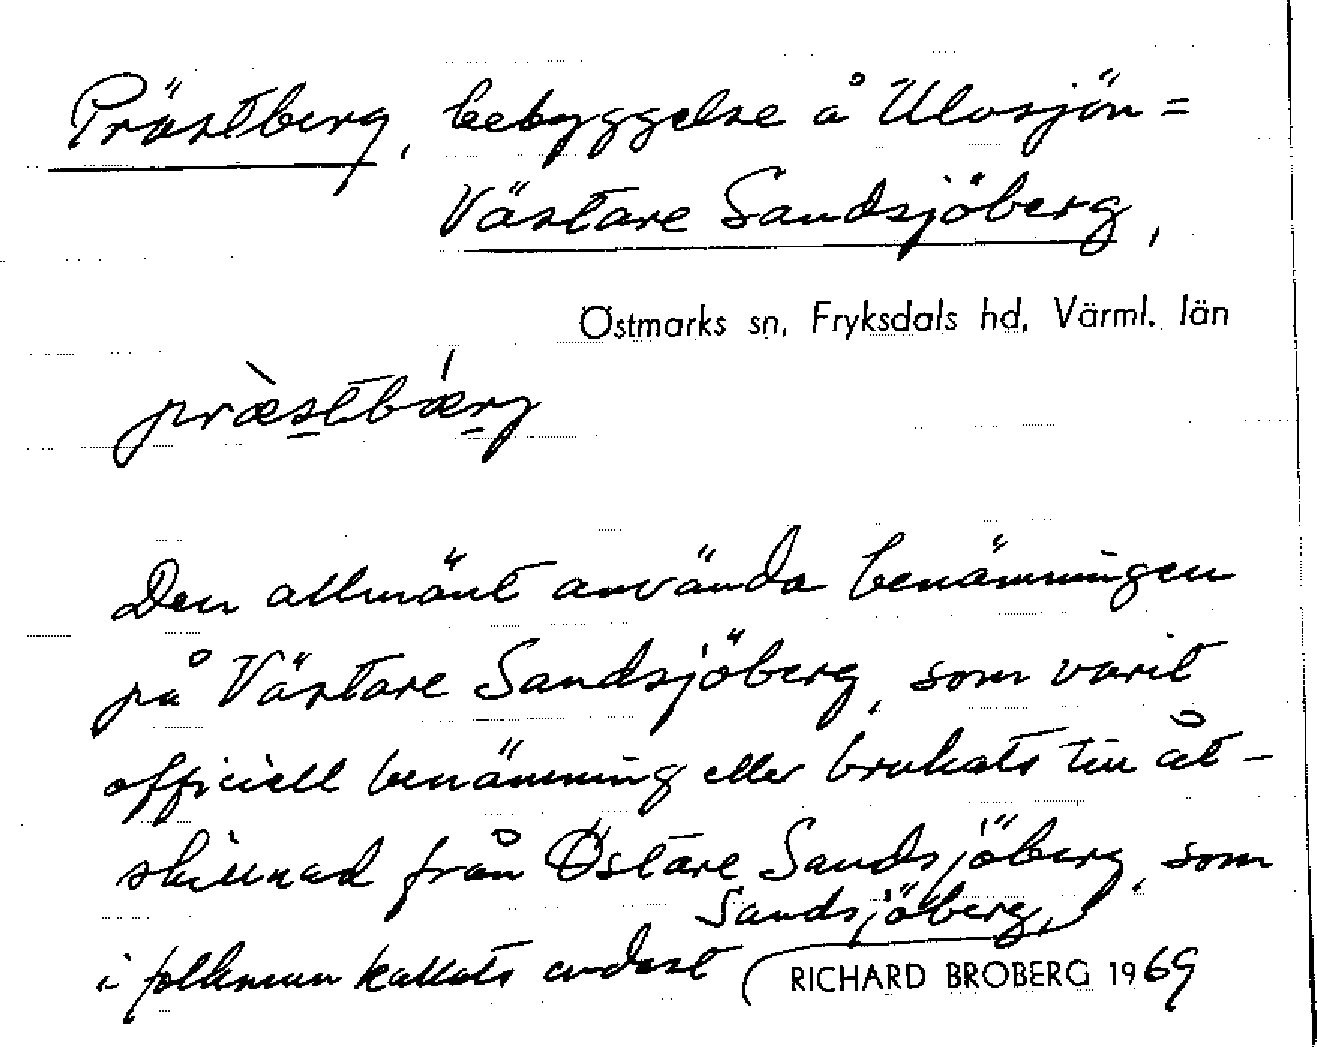 Prästberg, bebyggelse å Ulvsjön =
Västare Sandsjöberg,
Östmarks sn, Fryksdals hd, Värml. län
præ̀stbǽrj
Den allmänt använda benämningen
på Västare Sandsjöberg, som varit
officiell benämning eller brukats till åt-
skillnad från Östare Sandsjöberg, som
i folkmun kallats endast Sandsjöberg.
RICHARD BROBERG 1969